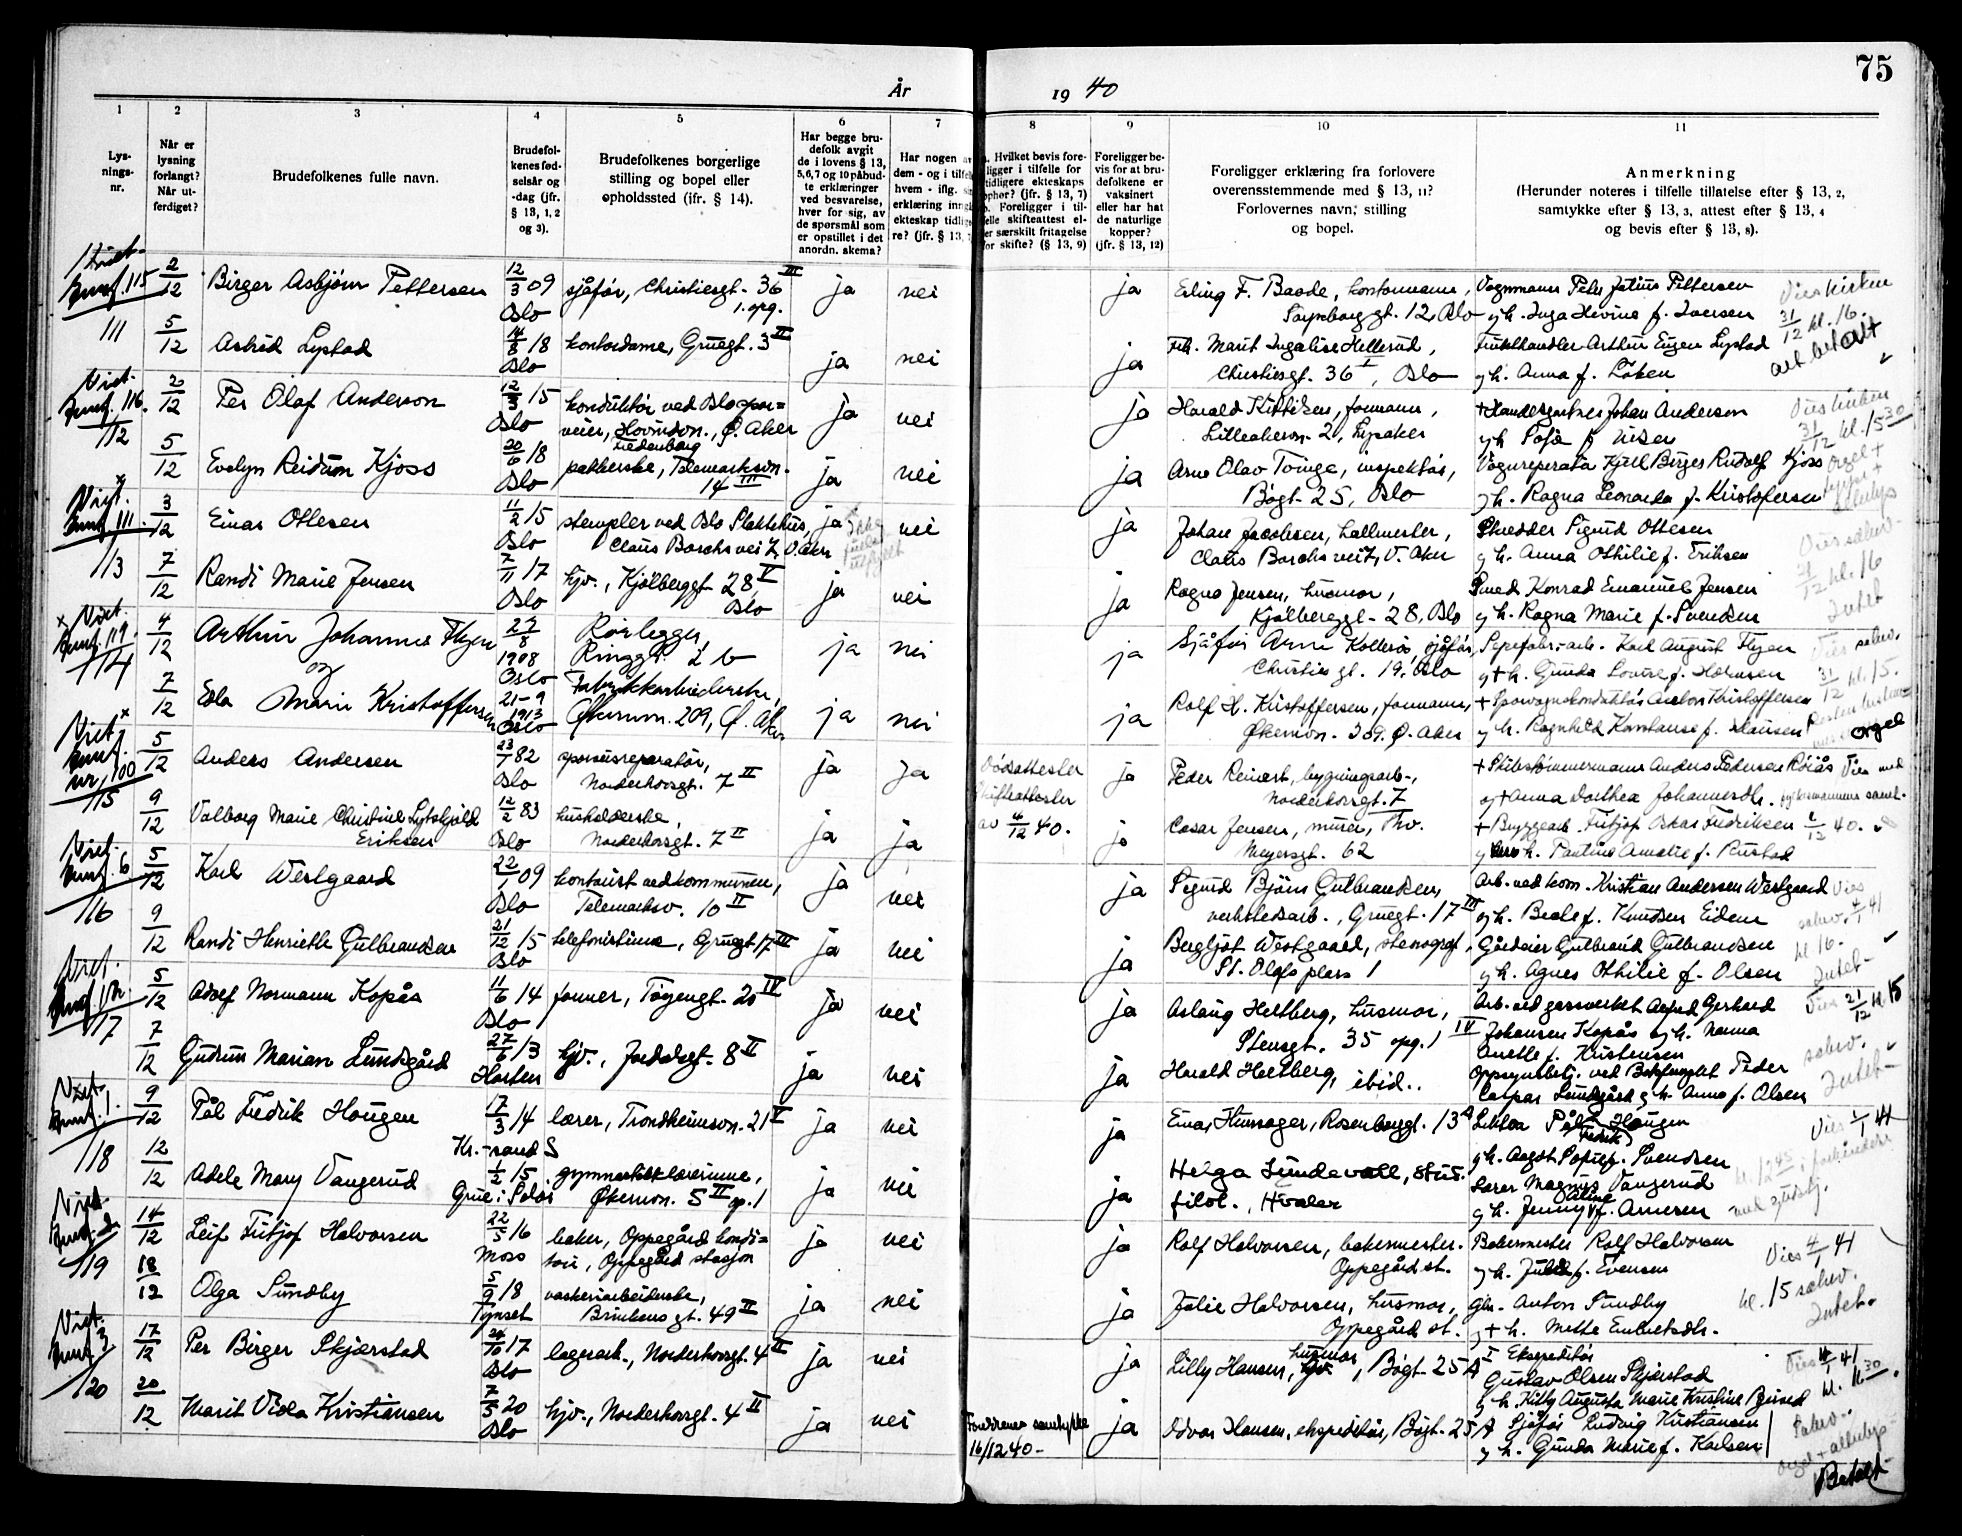 75
År 1940
1 2 3 4 5 6 7 8 9 10 11
Lysningsnr.
Når er lysning forlangt? Når utferdiget?
Brudefolkenes fulle navn.
Brudefolkenes fødselsår og -dag (jfr. § 13, 1, 2 og 3).
Brudefolkenes borgerlige stilling og bopel eller opholdssted (ifr. § 14).
Har begge brudefolk avgit de i lovens § 13, 5,6,7 og 10 påbudte erklæringer ved besvarelse, hver for sig, av de spørsmål som er opstillet i det anordn. skema?
Har nogen a
dem - og i tilfel
hvem - iflg. si
erklæring inng
ekteskap tidlig
re? (jfr. § 13,
a. Hvilket bevis foreligger i tilfelle for tidligere ekteskaps ophør? (jfr. § 13, 7)
b. Foreligger i tilfelle skifteattest eller særskilt fritagelse for skifte? (§ 13, 9)
Foreligger bevis for at brudefolkene er vaksinert eller har hat de naturlige kopper? (jfr. § 13, 12)
Foreligger erklæring fra forlovere overensstemmende med § 13, 11? Forlovernes navn, stilling og bopel.
Anmerkning
(Herunder noteres i tilfelle tillatelse efter § 13, 2, samtykke efter § 13, 3, attest efter § 13, 4 og bevis efter § 13, 8).
Viet. 115
111
2/12 Birger Asbjørn Pettersen 12/3 09 Oslo sjåfør, Christiesgt. 36 III 1. opg. ja nei ja Erling F. Baade, kontormann, 12, Oslo Vognmann Peder Julius Pettersen g.h. Inga Hervine f. Iversen Vies kirken 31/12 kl. 16.
5/12 Astrid Lystad 14/8 18 Oslo kontordame, Gruegt. 3 II ja nei ja Frk. Marit Ingalise Hellerud, Christiesgt. 36 I, Oslo Arthur Eugen Lystad g.h. Anna f. Løken
Viet. 116.
112
2/12 Per Olaf Anderson 12/3 15 Oslo konduktør ved Oslo sporveier, Hovinsvn., Ø. Aker ja nei ja Harald Kittilsen, formann, Lilleakervn. 2, Lysaker Johan Anderson g.h. Sofie f. Vies kirken 31/12 kl. 15 30
5/12 Evelyn Reidun Kjøss 20/6 18 Oslo pakkerske, Telemarksvn. 14 III ja nei ja Arne Olav Tvinge, inspektør, Bøgt. 25, Oslo Kjell Birger Rudolf Kjøss g.h. Ragna Leonarda f. Kristofersen
Viet. 111.
113
3/12 Einar Ottesen 11/2 15 Oslo stempler ved Oslo Slaktehus, Claus Borchs vei 7, V. Aker ja nei ja Johan Jacobsen, hallmester, Claus Borchs vei 7, V. Aker Skredder Sigurd Ottesen g.h. Anna Othilie f. Eriksen
7/12 Randi Marie Jensen 7/11 17 Oslo hjv., Kjølberggt 28 V Oslo ja nei ja Ragna Jensen, husmor, Kjølberggt. 28, Oslo Smed Konrad Emanuel Jensen g.h. Ragna Marie f. Svendsen 31/12 kl. 16 Intet
Viet. 119.
114
4/12 Arthur Johannes Flyen og 27/8 1908 Oslo Rørlegger, Ringgt. 2 b ja nei ja Sjåfør Arne Kollerø, sjåfør, Christies gt. 19, Oslo Karl August Flyen g.+h. Gunda Lovise f. Vies sakrv. 31/12 kl. 15.
7/12 Edla Marie Kristoffersen 21-9 1913 Oslo Fabrikkarbeiderske, Økernvn. 209, Ø. Aker ja nei ja Rolf H. Kristoffersen, formann, Økernvn. 209. Ø. Aker + Sporvognskonduktør Anton Kristoffersen g.h. Ragnhild Konstanse f. Hansen orgel
Viet nr. 100
115
5/12 Anders Andersen 23/7 82 Oslo Norderhovsgt. 7 II ja ja Dødsattester Skifteattester av 4/12 40. ja Peder Reinert, bygningsarb., Norderhovsgt. 7 + Anders Pedersen og + Anna Dorthea Johannesdtr. Vies med
9/12 Valborg Marie Christine Lytskjold Eriksen 12/2 83 Oslo husholderske, Norderhovsgt. 7 II ja ja ja Cæsar Jensen, murer, Thv. Meyersgt. 62 + Bryggearb. Fritjof Oskar Fredriksen g. h. Pauline Amalie f. Rustad
Viet. 6
116
5/12 Karl Westgaard 22/1 09 Oslo kontorist ved kommunen, Telemarksv. 10 II ja nei ja Sigurd Bjørn Gulbrandsen, verkstedsarb., Gruegt. 17 III Arb. ved kom. Kristian Andersen Westgaard g.h. Beate f. Knudsen Eidem Vies sakrv. 4/1 41 kl. 16. Intet-
9/12 Randi Henriette Gulbrandsen 21/12 15 Oslo telefonistinne, Gruegt 17 III ja nei ja Bergljot Westgaard, stenograf, St. Olafs plass 1 Gårdeier Gulbrand Gulbrandsen g.h. Agnes Othilie f. Olsen
Viet.
117
5/12 Adolf Normann Kopås 11/6 14 Oslo former, Tøyengt. 20 IV ja nei ja Aslaug Heltberg, husmor, Stensgt. 35 opg. 1 IV Arb. ved gassverket Alfred Gerhard Johansen Kopås g.h. Nanna Anette f. Kristensen Vies 21/12 kl 15 sakrv. Intet-
7/12 Gudrun Marian Lundsgård 27/6 13 Horten hjv., Jordalsgt. 8 II ja nei ja Harald Heltberg, ibid.. Peder Casper Lundsgård g.h. Anna f. Olsen
Viet. 1.
118
9/12 Pål Fredrik Haugen 17/3 14 Kr.-sand S lærer, Trondheimsvn. 21 V ja nei ja Einar Rosenborggt. 13 A Lektor Pål Fredrik Haugen g.h. Aagot Sofie f. Svendsen Vies 1/1 41
12/12 Adele Mary Vangerud 1/2 15 Grue i Solør gymnastikklærerinne, Økernvn. 5 II op. 1 ja nei ja Helga Lundevall, stud. filol., Hvaler Lærer Magnus Vangerud g.h. Jenny Aline f. Arnesen
Viet. 2
119
14/12 Leif Fritjof Halvorsen 22/5 16 Moss baker, Oppegård konditori, Oppegård stasjon ja nei ja Rolf Halvorsen, bakermester. Oppegård st. Bakermester Rolf Halvorsen g.h. Julie f. Evensen Vies 4/1 41 kl. 15 sakrv. Intet.
18/12 Olga Sundby 5/9 18 Tynset vaskeriarbeiderske, Brinkens gt. 49 II ja nei ja Julie Halvorsen, husmor, Oppegård st. Gbr. Anton Sundby g + h. Mette Embretsdtr.
Viet. 3
120
17/12 Per Birger Skjærstad 24/10 17 Oslo lagerarb., Norderhovsgt. 4 II ja nei ja Lilly Hansen, husmor, Bøgt. 25 A I Ekspeditør Gustav Olsen Skjærstad g.h. Kitty Augusta Marie Kristine
20/12 Marit Viola Kristiansen 7/5 20 Oslo hjv., Norderhovsgt. 4 II ja nei Foreldrenes samtykke 16/12 40- ja Odvar Hansen, ekspeditør, Bøgt. 25 A Sjåfør Ludvig Kristiansen g.h. Gunda Marie f. Karlsen Sakrv.. Betalt